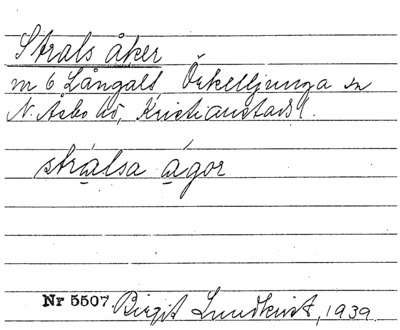 Strals åker
nr 6 Långalt Örkelljunga sn
N. Åsbo hd, Kristianstads l.
strálsa ágor
Nr 5507. Birgit Lundkvist, 1939.